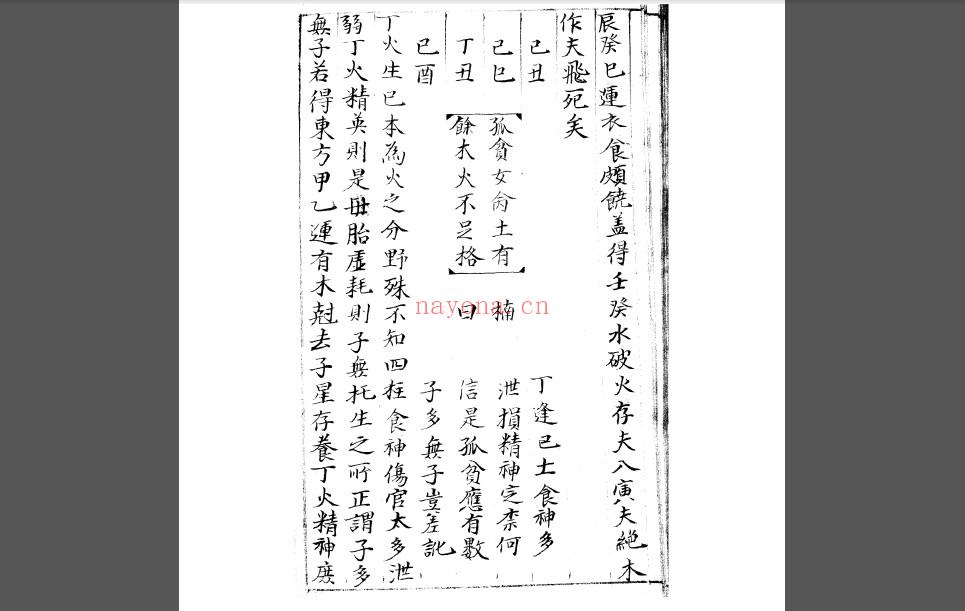 辰癸巳運衣食頗饒盖得壬癸水破火存夫入寅夫絶木
作夫飛死矣
己丑
己巳
丁丑
己酉
孤貧女命土有
餘木火不足格
楠
曰
丁逢已土食神多
泄損精神定柰何
信是孤貧應有數
子多無子豈差訛
丁火生已本為火之分野殊不知四柱食神傷官太多泄
弱丁火精英則是毋胎虛耗則子無托生之所正謂子多
無子若得東方甲乙運有木尅去子星存養丁火精神庻
nayona.cn